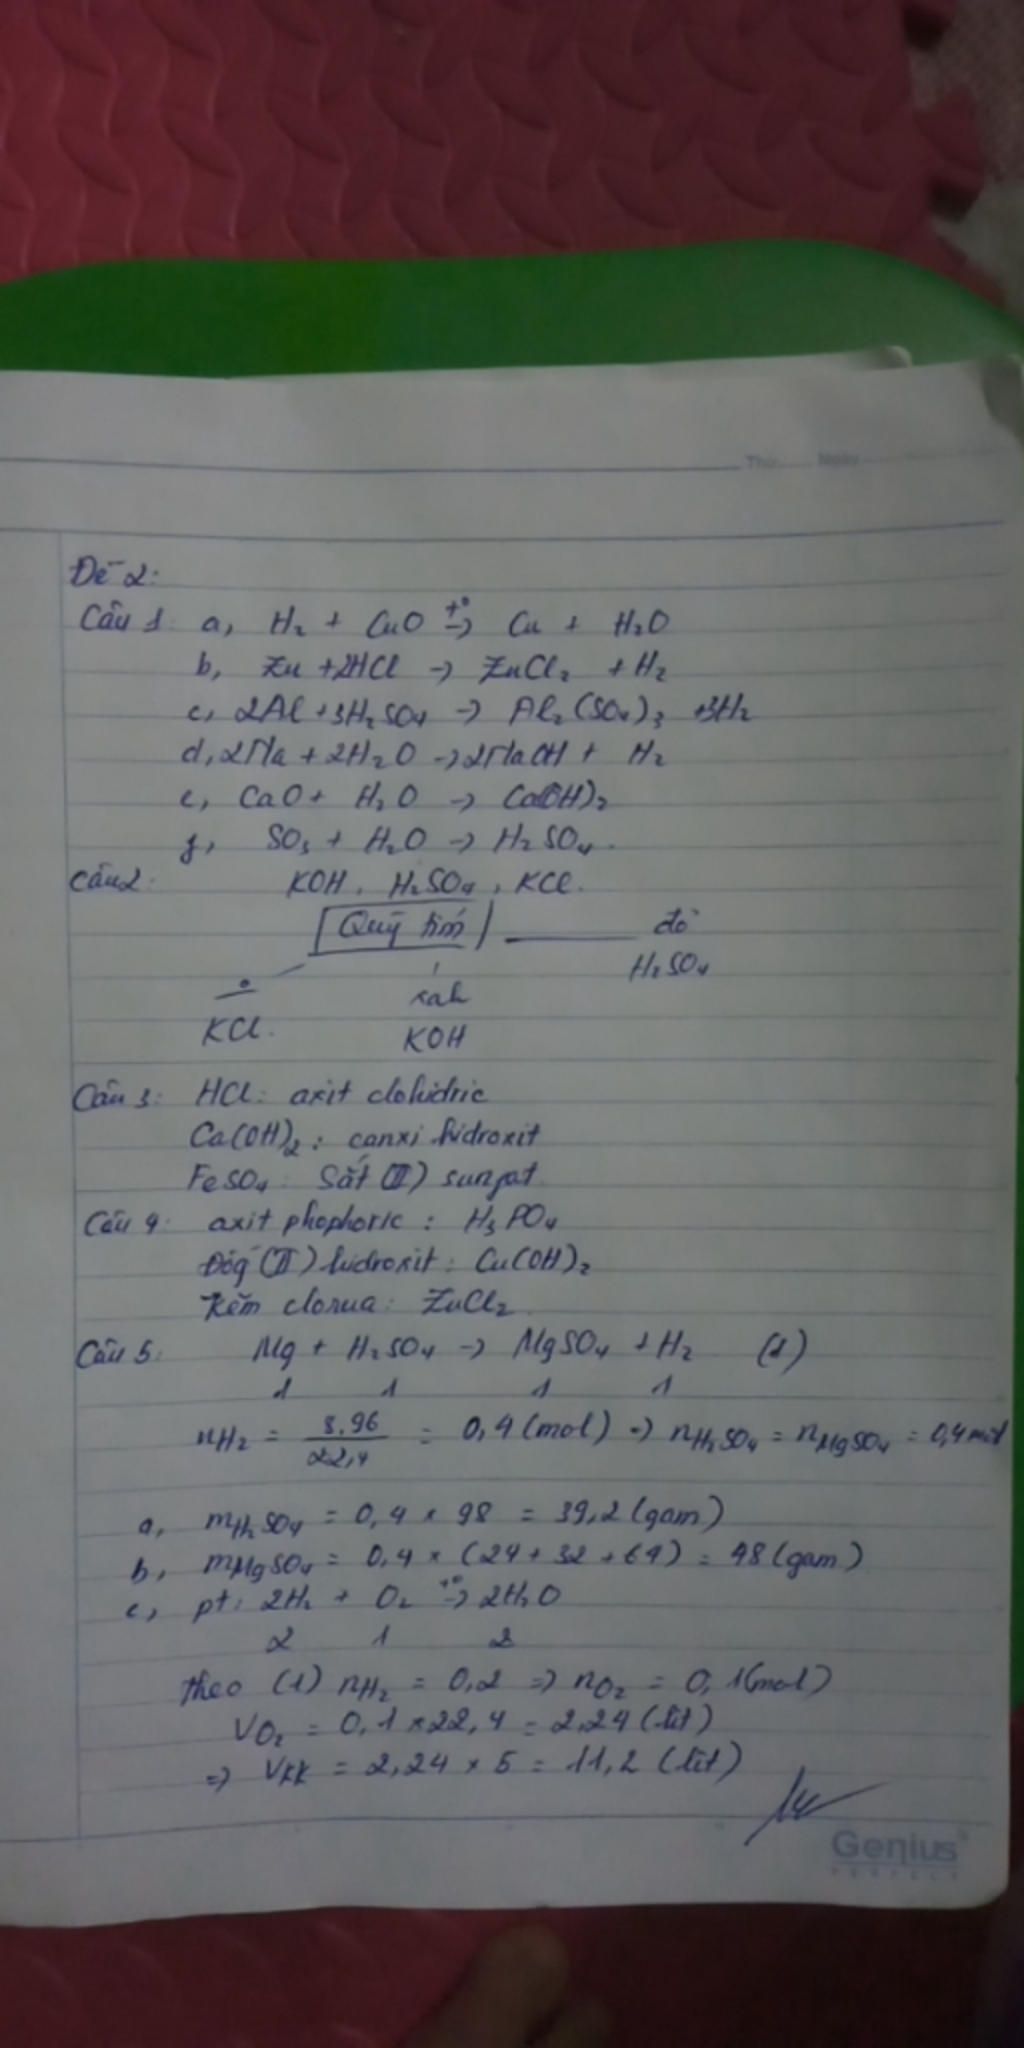 Thứ Ngày
Đề 2:
Câu 1: a, H₂ + CuO t°→ Cu + H₂O
b, Zn + 2HCl → ZnCl₂ + H₂
c, 2Al + 3H₂SO₄ → Al₂(SO₄)₃ + 3H₂
d, 2Na + 2H₂O → 2NaOH + H₂
e, CaO + H₂O → Ca(OH)₂
f, SO₃ + H₂O → H₂SO₄.
Câu 2: KOH, H₂SO₄, KCl.
Quỳ tím đỏ
H₂SO₄
xah
KCl. KOH
Câu 3: HCl: axit clohidric
Ca(OH)₂: canxi hidroxit
FeSO₄: Sắt (II) sunfat
Câu 4: axit phophoric: H₃PO₄
Đồg (II) hidroxit: Cu(OH)₂
Kẽm clorua: ZnCl₂
Câu 5: Mg + H₂SO₄ → MgSO₄ + H₂ (1)
1 1 1 1
nH₂ = 8,96/22,4 = 0,4 (mol) => nH₂SO₄ = nMgSO₄ = 0,4 mol
a, mH₂SO₄ = 0,4 × 98 = 39,2 (gam)
b, mMgSO₄ = 0,4 × (24 + 32 + 64) = 48 (gam)
c, pt: 2H₂ + O₂ t°→ 2H₂O
2 1 2
theo (1) nH₂ = 0,2 => nO₂ = 0,1 (mol)
VO₂ = 0,1 × 22,4 = 2,24 (lít)
=> VKK = 2,24 × 5 = 11,2 (lít)
Genius